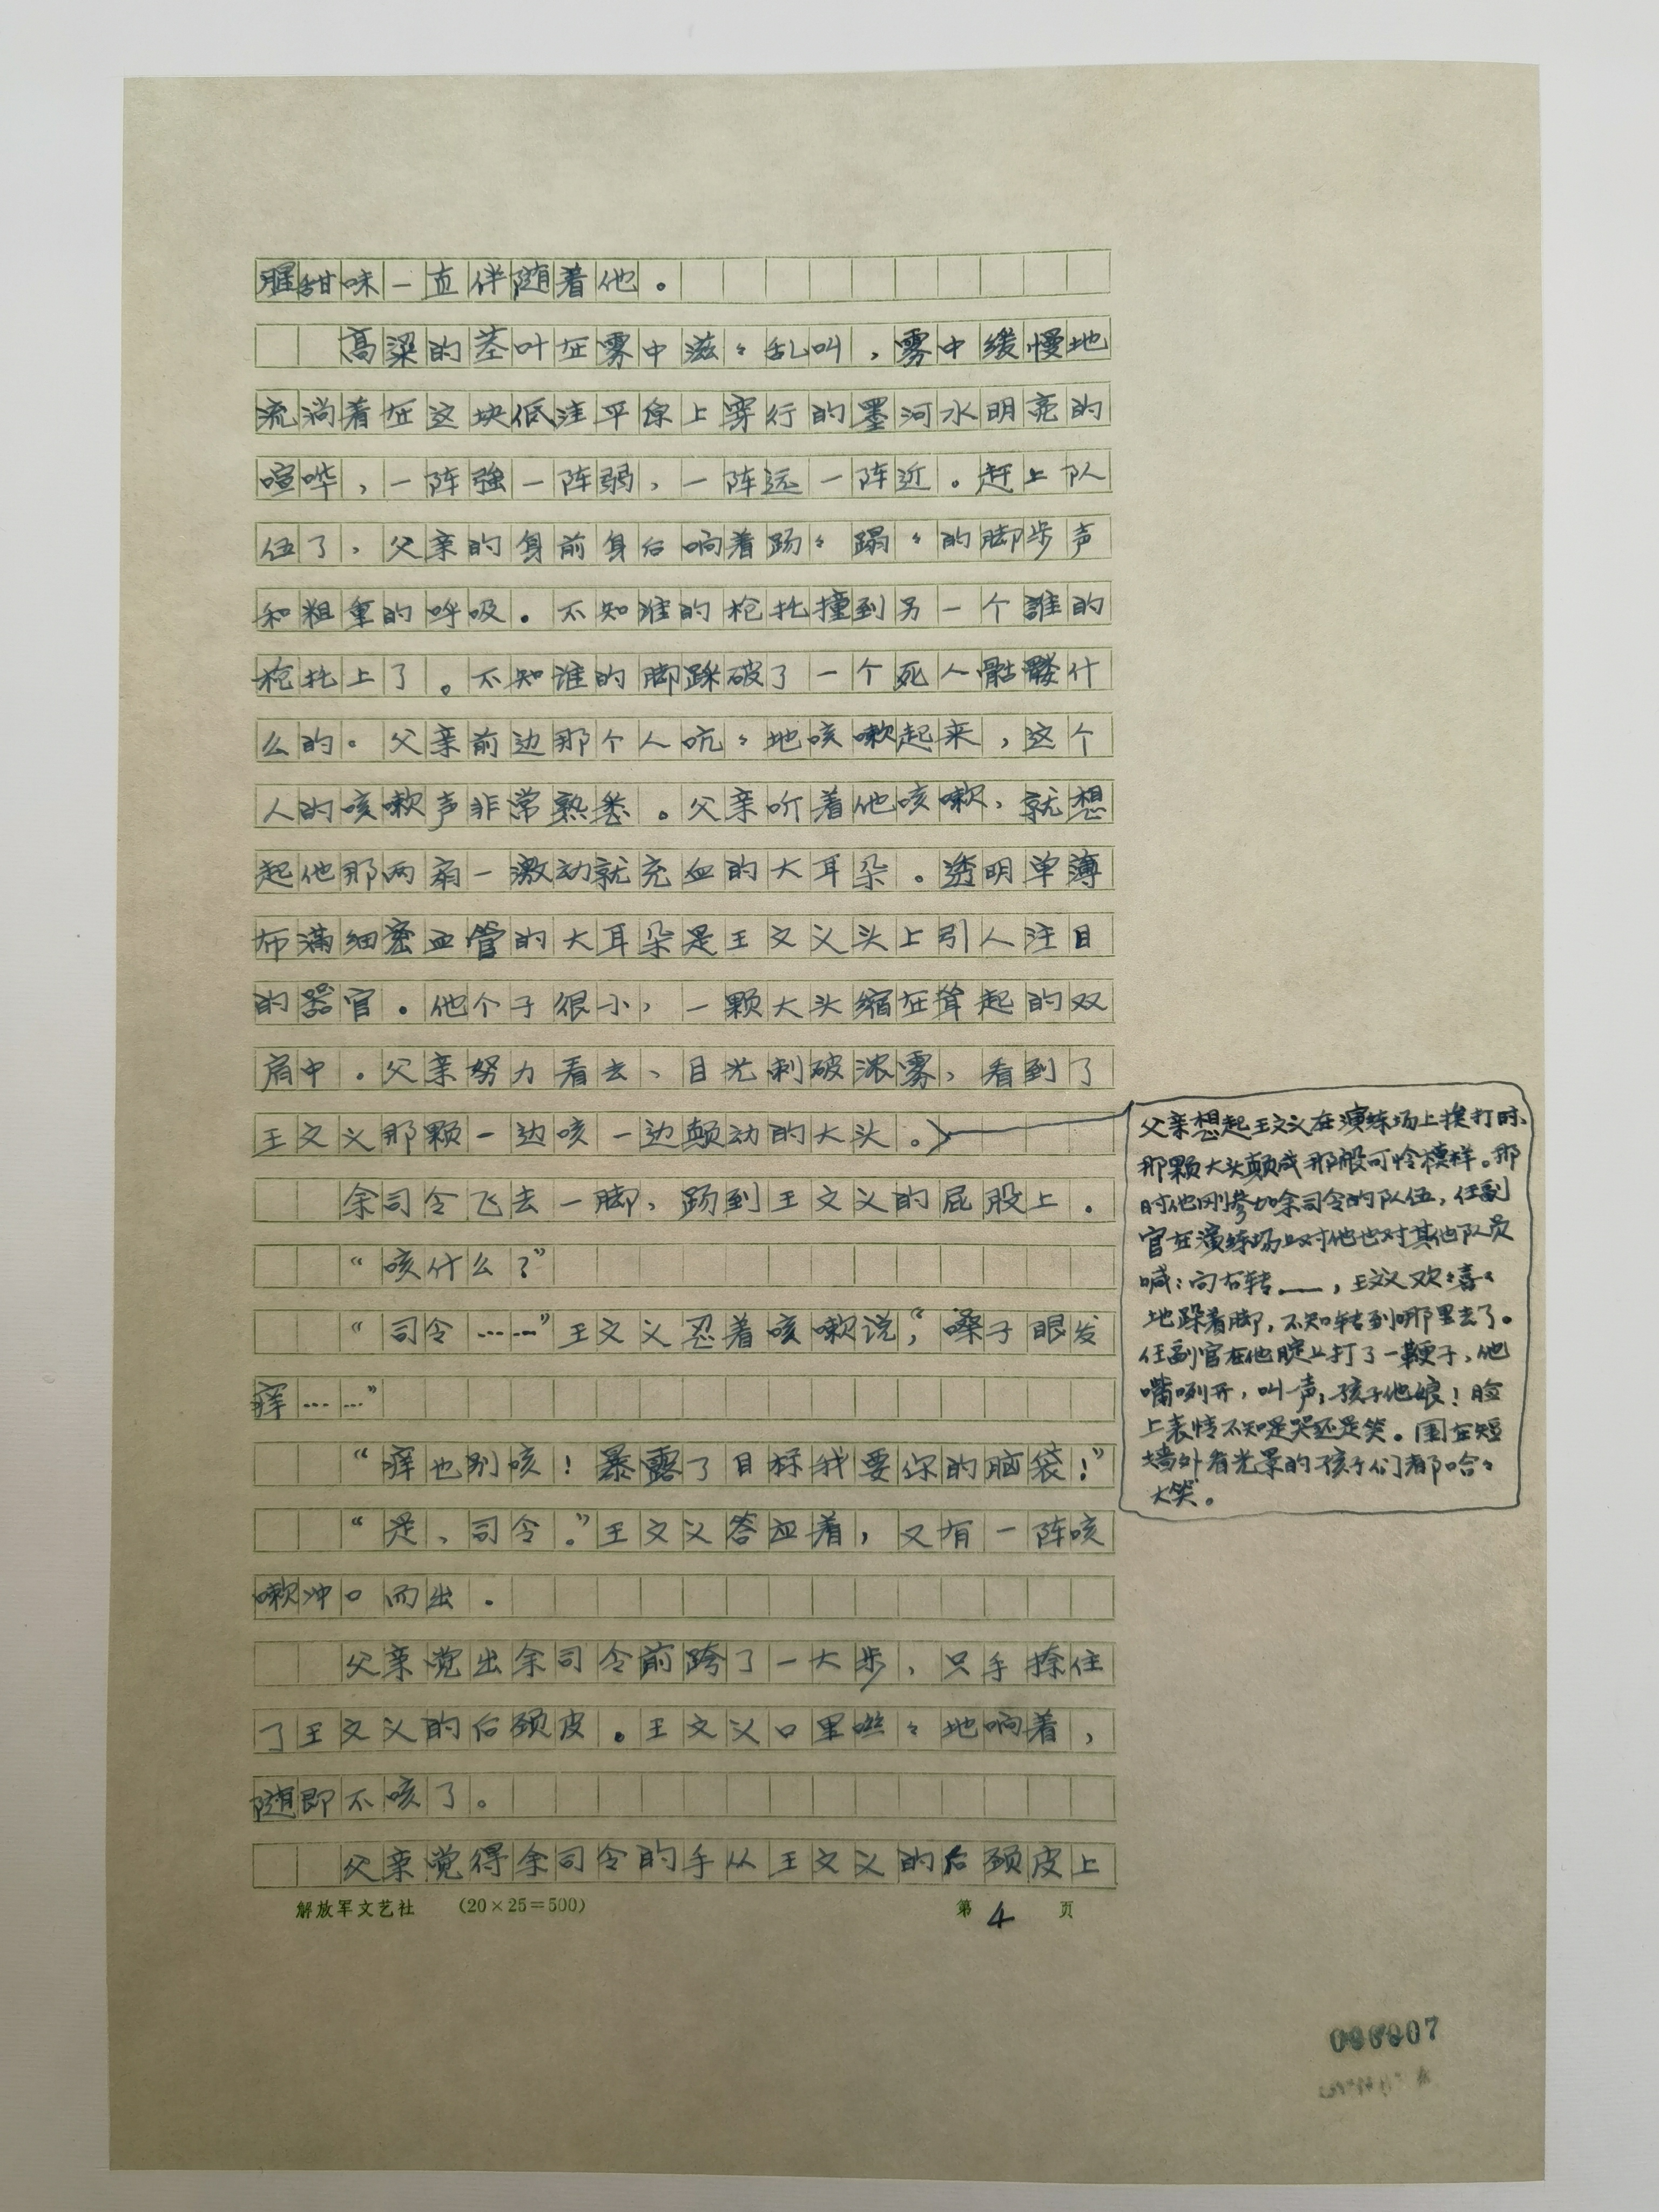 腥甜味一直伴随着他。
高粱的茎叶在雾中滋々乱叫，雾中缓慢地
流淌着在这块低洼平原上穿行的墨河水明亮的
喧哗，一阵強一阵弱，一阵远一阵近。赶上队
伍了，父亲的身前身后响着踢々蹋々的脚步声
和粗重的呼吸。不知谁的枪托撞到另一个誰的
枪托上了。不知谁的脚踩破了一个死人骷髅什
么的。父亲前边那个人吭々地咳嗽起来，这个
人的咳嗽声非常熟悉。父亲听着他咳嗽，就想
起他那两扇一激动就充血的大耳朵。透明单薄
布满细密血管的大耳朵是王文义头上引人注目
的器官。他个子很小，一颗大头缩在耸起的双
肩中。父亲努力看去、目光刺破浓雾，看到了
王文义那颗一边咳一边颠动的大头。
父亲想起王文义在演练场上挨打时、
那颗大头颠成那般可怜模样。那
时他刚参加余司令的队伍，任副
官在演练场上对他也对其他队员
喊：向右转——，王文义欢々喜々
地跺着脚，不知转到哪里去了。
任副官在他腚上打了一鞭子，他
嘴咧开，叫一声：孩子他娘！脸
上表情不知是哭还是笑。围在短
墙外看光景的孩子们都哈々
大笑。
余司令飞去一脚、踢到王文义的屁股上。
“咳什么？”
“司令……”王文义忍着咳嗽说，“嗓子眼发
痒……”
“痒也别咳！暴露了目标我要你的脑袋！”
“是、司令。”王文义答应着，又有一阵咳
嗽冲口而出。
父亲觉出余司令前跨了一大步，只手捺住
了王文义的后颈皮。王文义口里咝々地响着，
随即不咳了。
父亲觉得余司令的手从王文义的后颈皮上
解放军文艺社 (20×25=500) 第 4 页